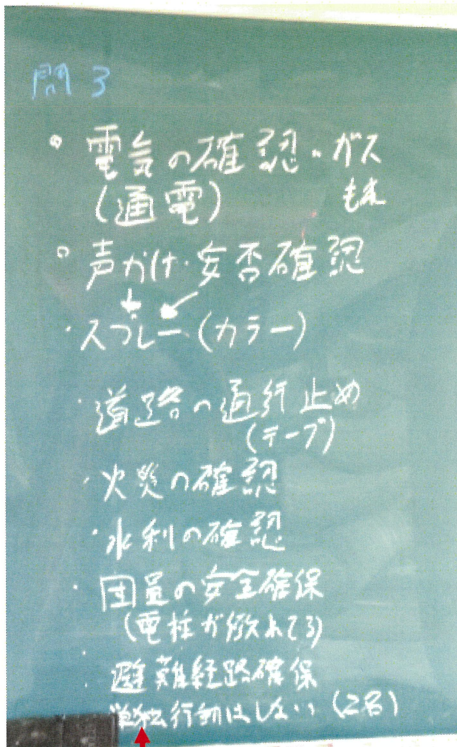 問3
。電気の確認・ガス
(通電) もれ
。声かけ・安否確認
・スプレー(カラー)
・道路の通行止め
(テープ)
・火災の確認
・水利の確認
・団員の安全確保
(電柱が倒れてる)
・避難経路確保
単独行動はしない(2名)